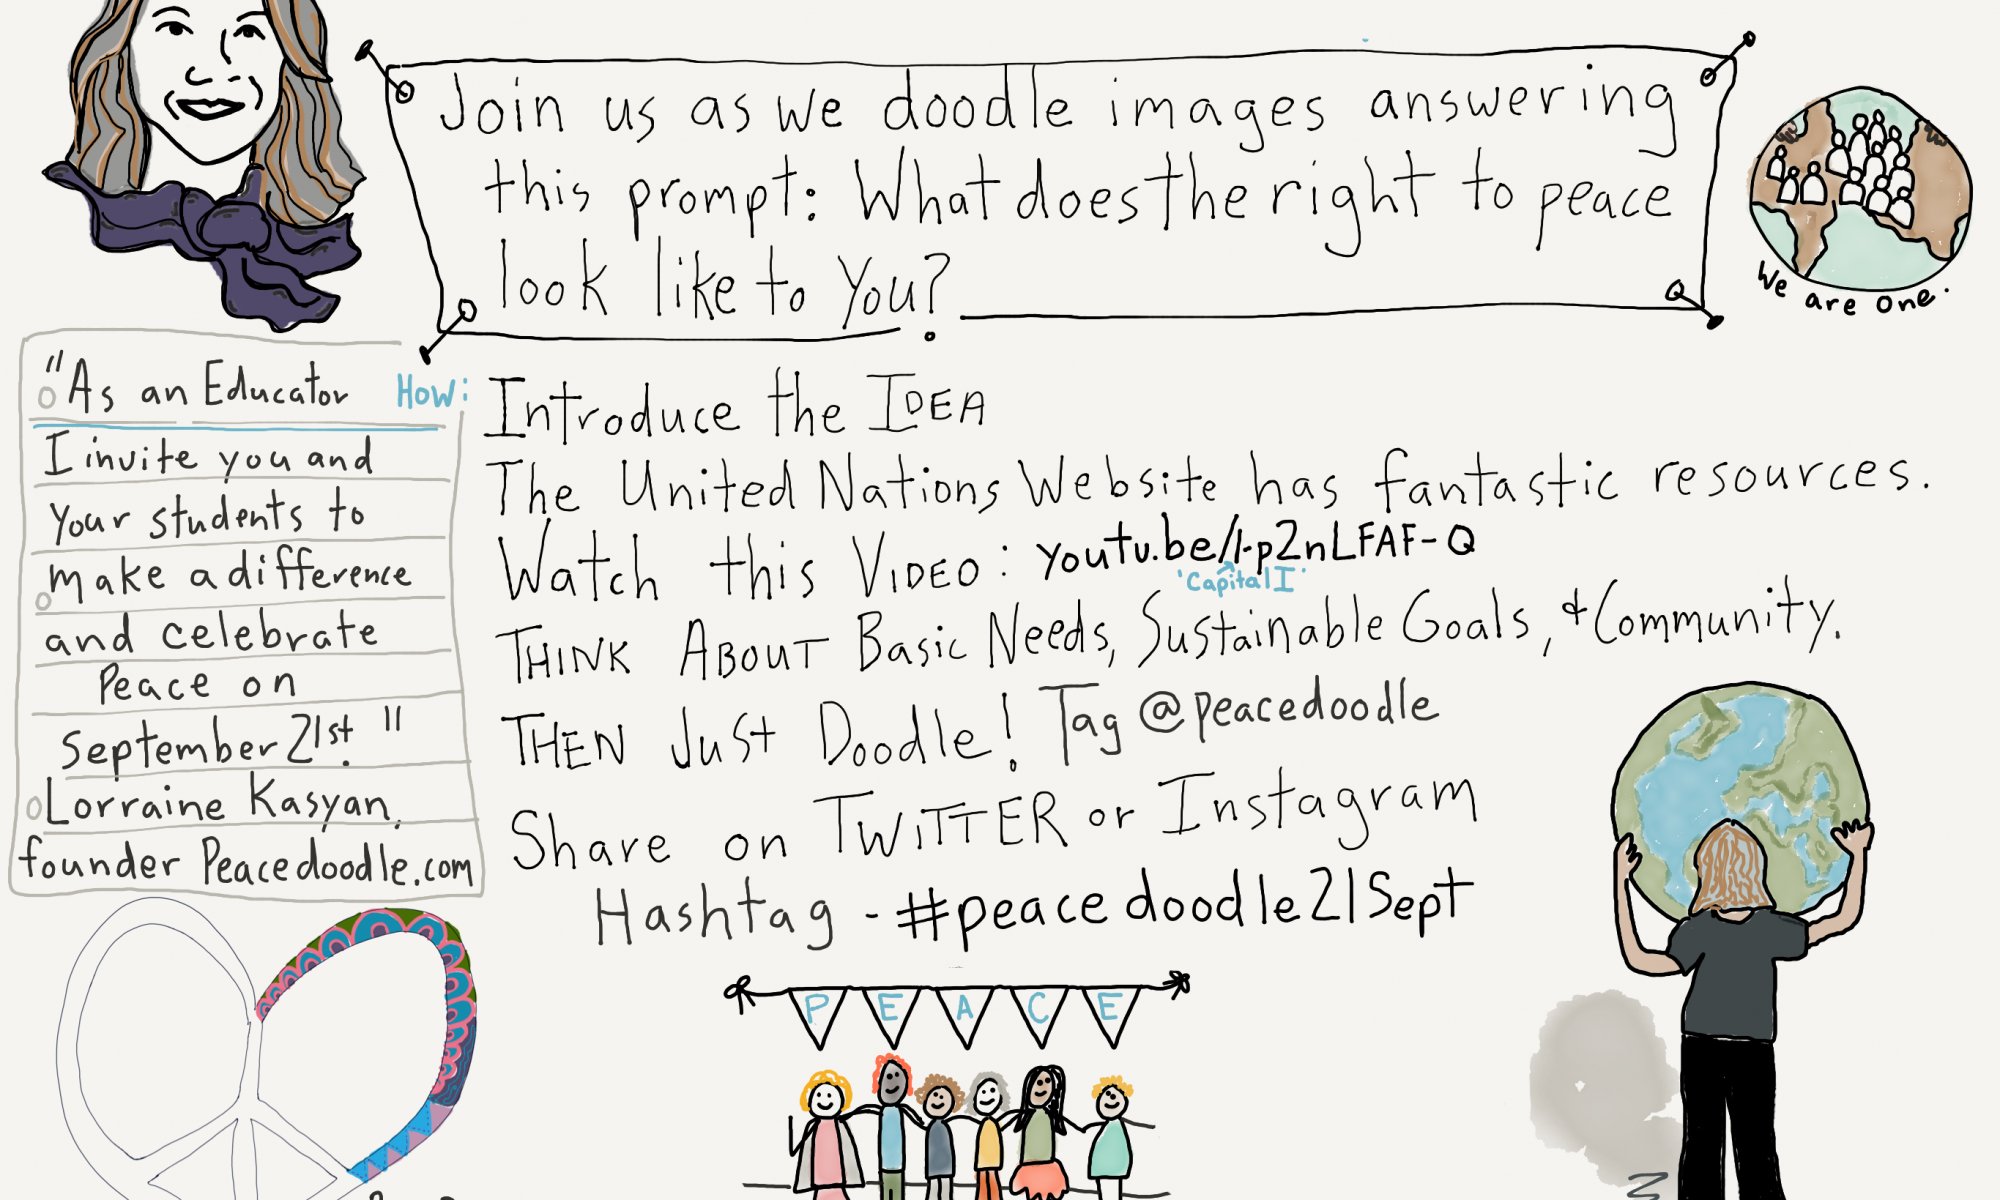 Join us as we doodle images answering
this prompt: What does the right to peace
look like to you?
We are one.
"As an Educator
I invite you and
your students to
make a difference
and celebrate
Peace on
September 21st."
Lorraine Kasyan,
founder Peacedoodle.com
How: Introduce the IDEA
The United Nations Website has fantastic resources.
Watch this VIDEO: youtu.be/I-p2nLFAF-Q
'Capital I'
THINK ABOUT Basic Needs, Sustainable Goals, + Community.
THEN Just Doodle! Tag @peacedoodle
Share on TWITTER or Instagram
Hashtag - #peacedoodle21Sept
PEACE